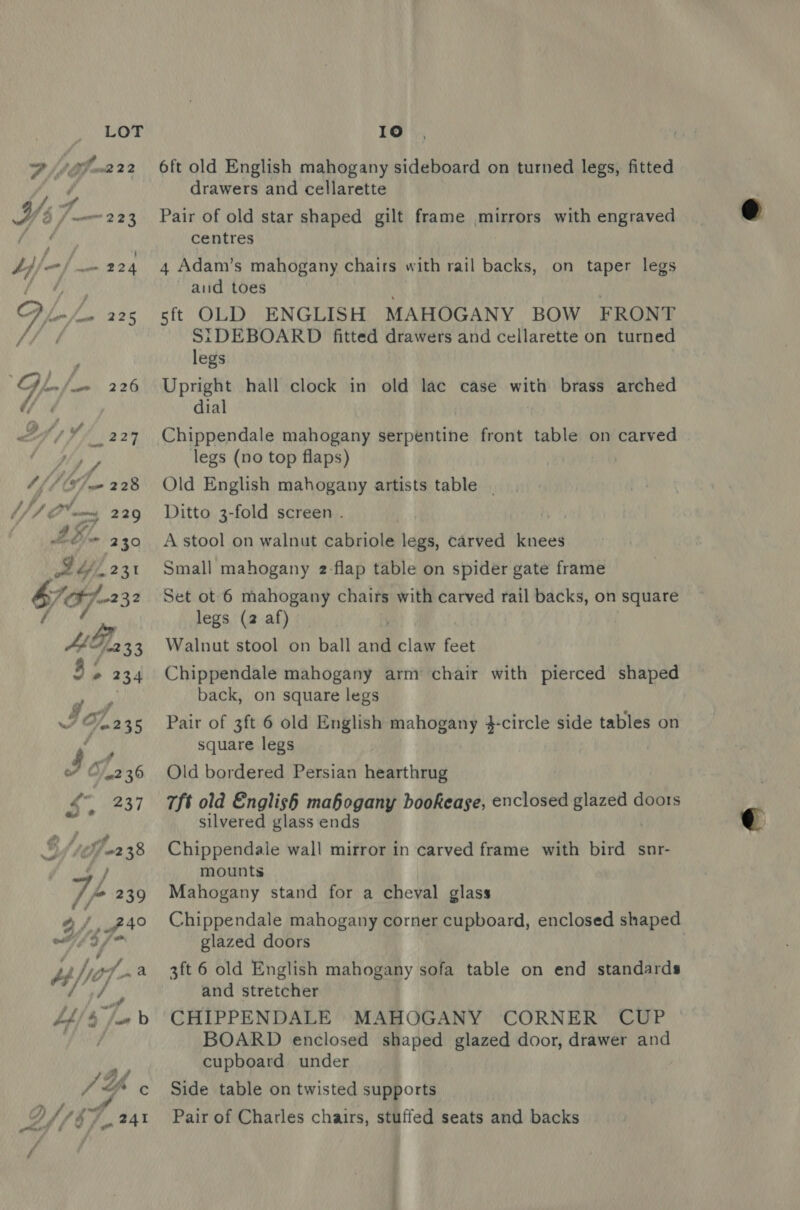 LOT 10
222 6ft old English mahogany sideboard on turned legs, fitted
drawers and cellarette
223 Pair of old star shaped gilt frame mirrors with engraved
centres
224 4 Adam's mahogany chairs with rail backs, on taper legs
and toes
225 5ft OLD ENGLISH MAHOGANY BOW FRONT
SIDEBOARD fitted drawers and cellarette on turned
legs
226 Upright hall clock in old lac case with brass arched
dial
227 Chippendale mahogany serpentine front table on carved
legs (no top flaps)
228 Old English mahogany artists table
229 Ditto 3-fold screen .
230 A stool on walnut cabriole legs, carved knees
231 Small mahogany 2-flap table on spider gate frame
232 Set ot 6 mahogany chairs with carved rail backs, on square
legs (2 af)
233 Walnut stool on ball and claw feet
234 Chippendale mahogany arm chair with pierced shaped
back, on square legs
235 Pair of 3ft 6 old English mahogany ½-circle side tables on
square legs
236 Old bordered Persian hearthrug
237 7ft old English mahogany bookease, enclosed glazed doors
silvered glass ends
238 Chippendale wall mirror in carved frame with bird snr-
mounts
239 Mahogany stand for a cheval glass
240 Chippendale mahogany corner cupboard, enclosed shaped
glazed doors
a 3ft 6 old English mahogany sofa table on end standards
and stretcher
b CHIPPENDALE MAHOGANY CORNER CUP
BOARD enclosed shaped glazed door, drawer and
cupboard under
c Side table on twisted supports
241 Pair of Charles chairs, stuffed seats and backs